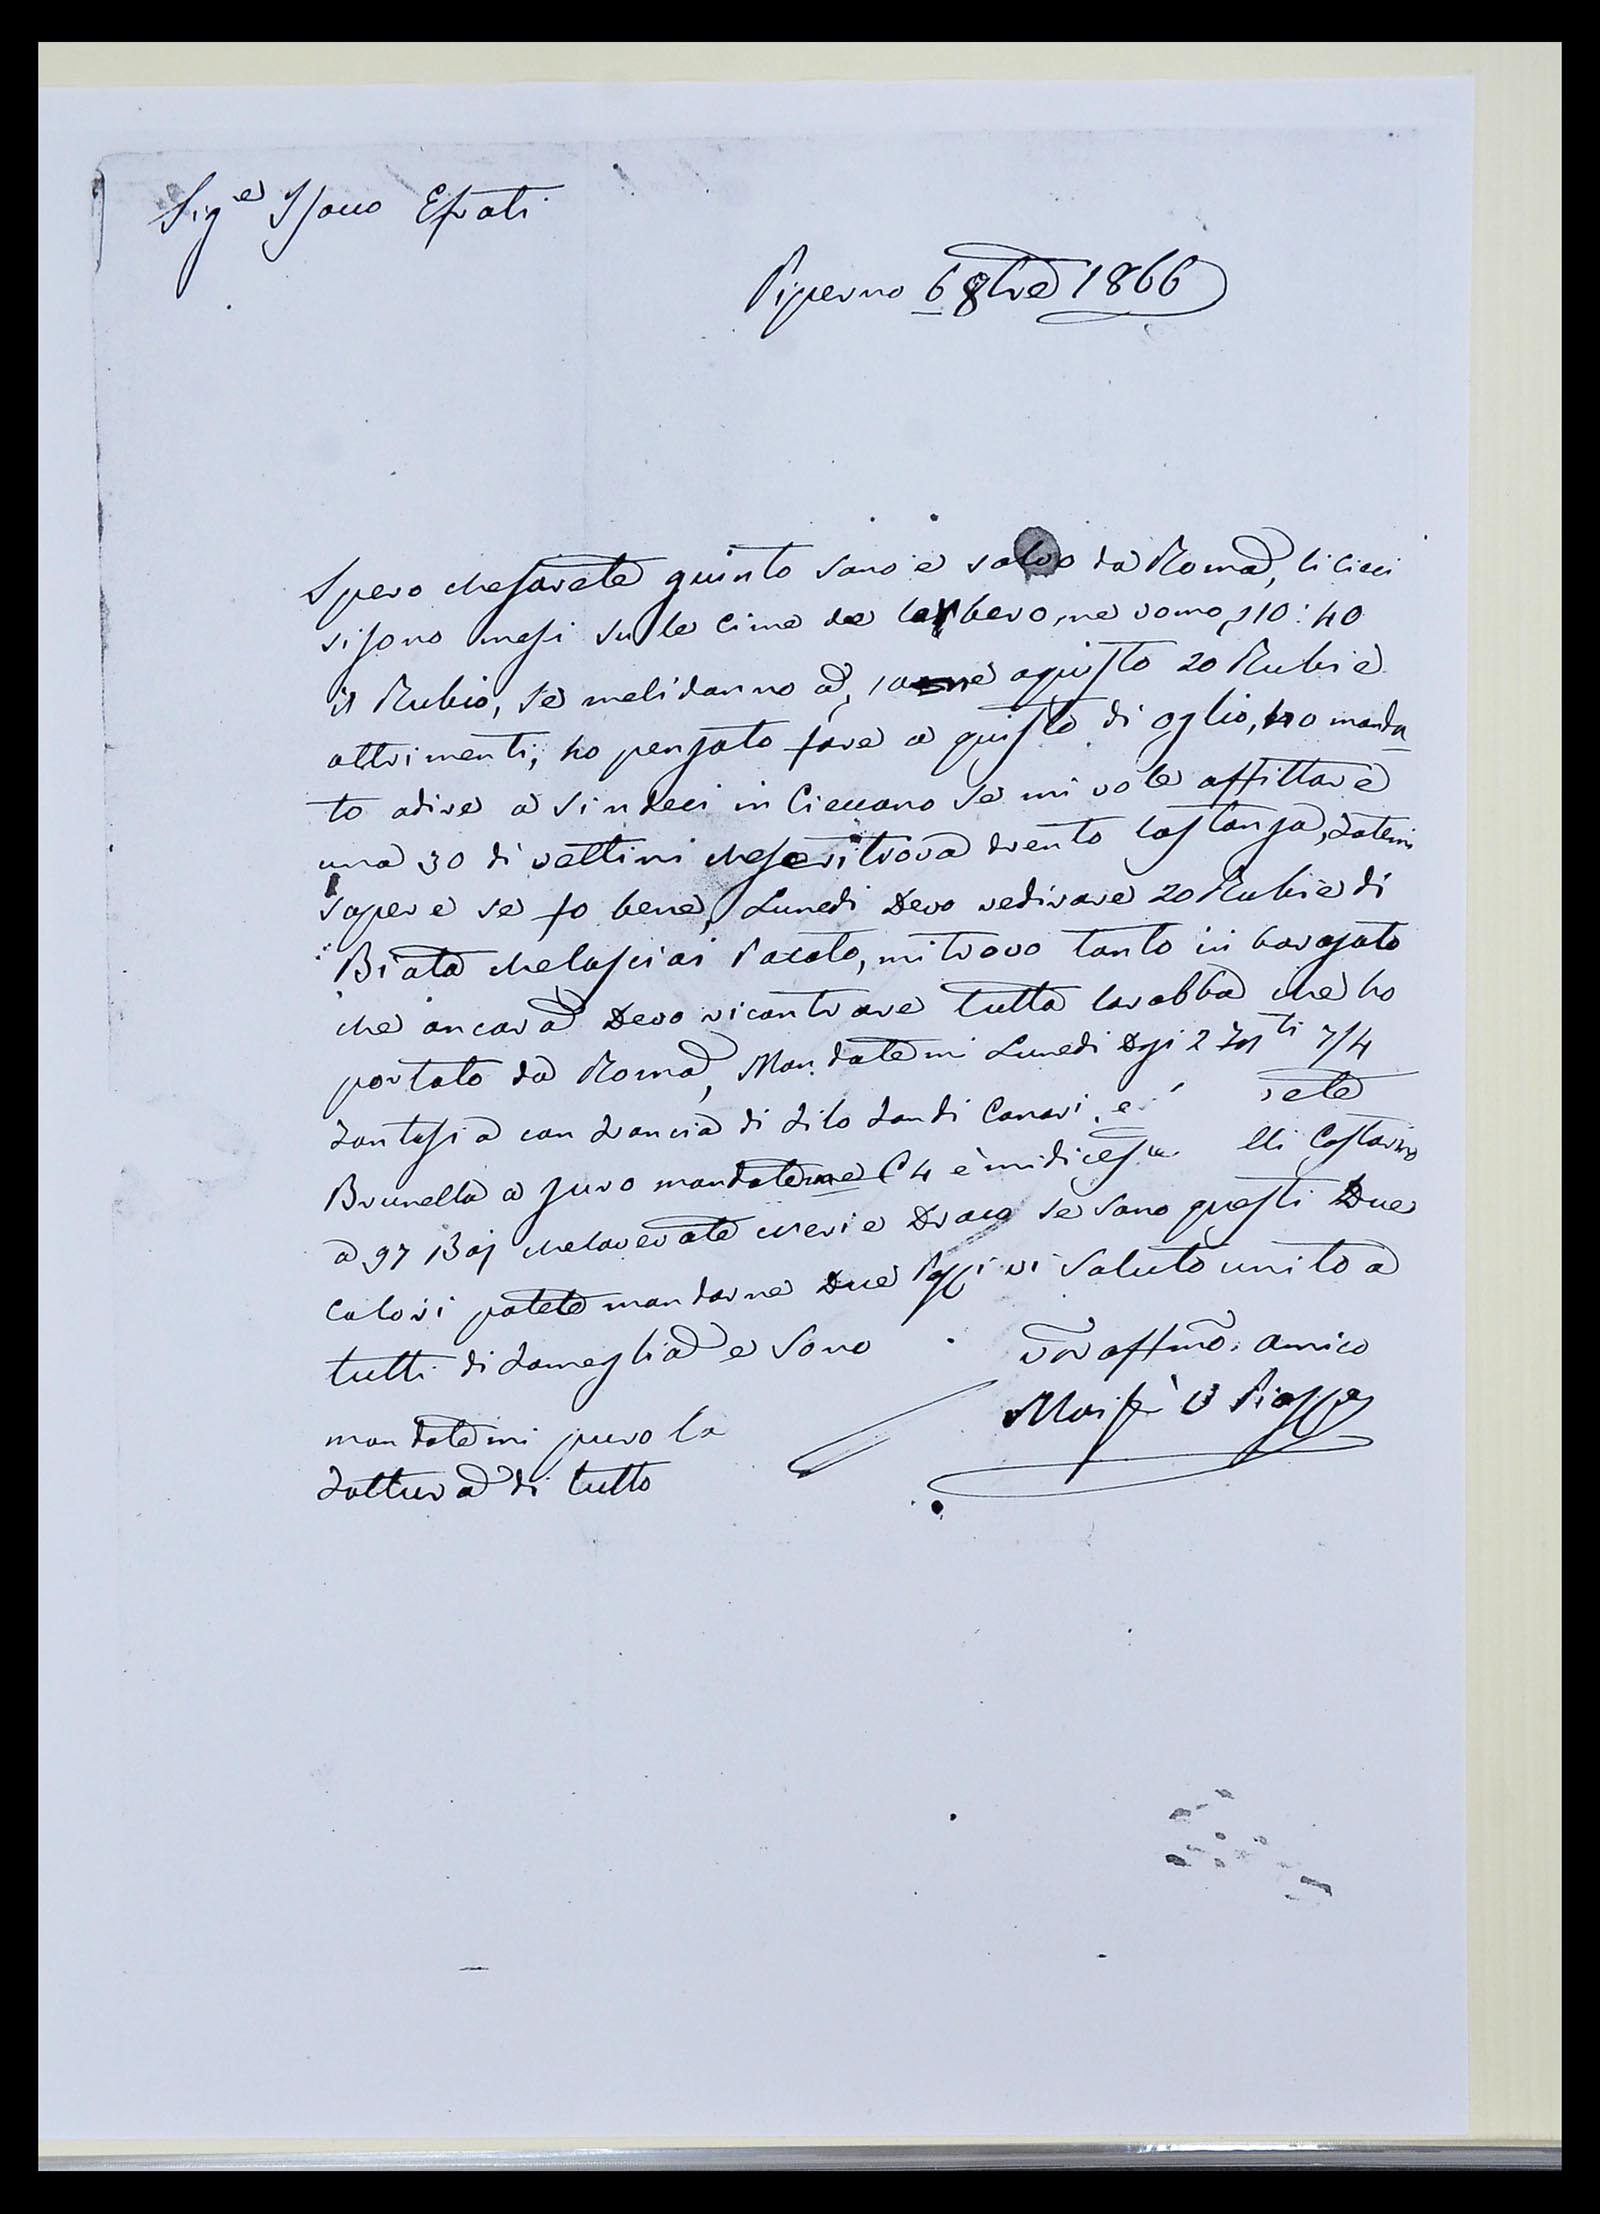 Sig.e Isacco Efrati
Piperno 6 8bre 1866
Spero chesarete giunto sano e salvo da Roma, li Cieci
si sono mesi su le cime de lalbero, ne vono 10:40
il Rubio, se melidanno a, 10 aquisto 20 Rubie
altrimenti, ho pensato fare aquisto di oglio, ho manda
to adire a Sindeci in Ciecano se mi vole affittare
una 30 di vettini chese ritrova drento lastanza, datemi
sapere se fo bene, Lunedi Devo redirare 20 Rubie di
Biada chelasciai Pacato, mitrovo tanto in barazato
che ancora Devo ricontrare tutta larobba che ho
portato da Roma, Mandatemi Lunedi 2 7/4
fantasia con francia di filo fondi Canari, e sete
Brunella a zuro mandatene 4 è midicesti elli Costavino
a 97 Baj chelavevate neri e Draco se sono questi Due
Colori potete mandarne Due Pezzi vi Saluto unito a
tutti di fameglia e Sono
vro affmo. amico
Moisè B Piazza
mandatemi puro la
fattura di tutto